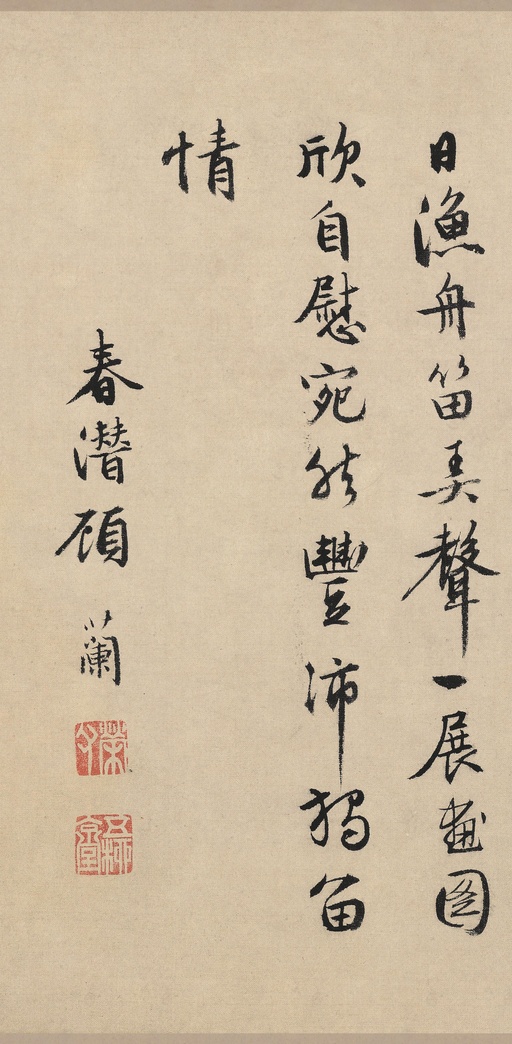 日漁舟笛弄聲一展畫圖
欣自慰宛然豐沛獨留
情
春潛顧蘭
榮父